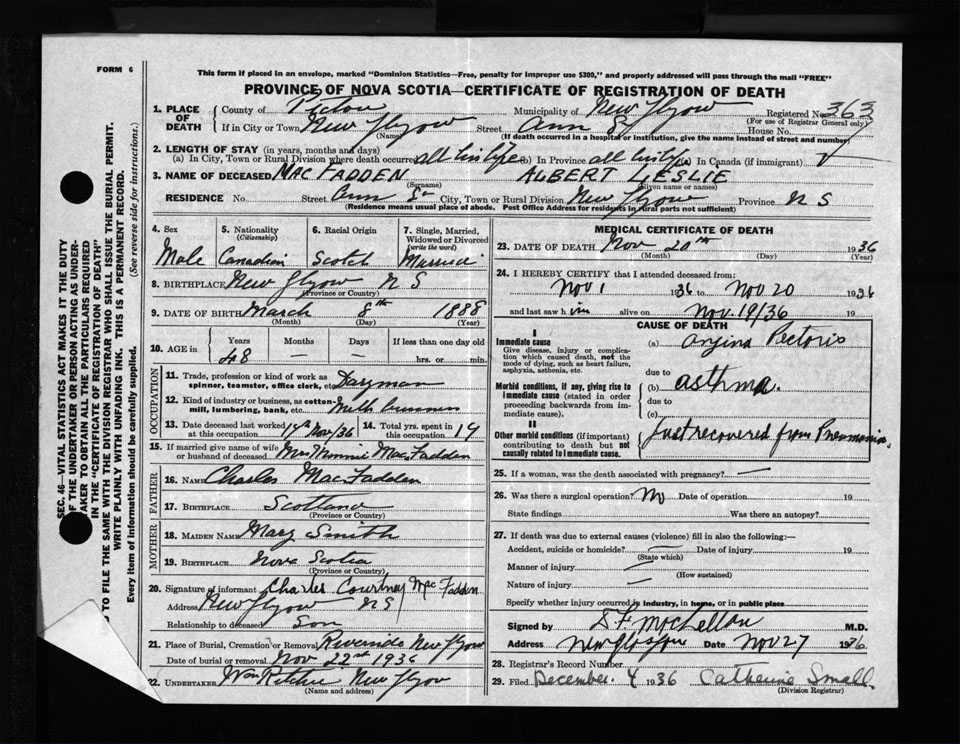 FORM 6
This form if placed in an envelope, marked "Dominion Statistics—Free, penalty for improper use $300," and properly addressed will pass through the mail "FREE"
PROVINCE OF NOVA SCOTIA—CERTIFICATE OF REGISTRATION OF DEATH
1. PLACE OF DEATH County of Pictou Municipality of New Glgow Registered No. 363
(For use of Registrar General only)
If in City or Town New Glgow Street Ann St House No.
(Name) (If death occurred in a hospital or institution, give the name instead of street and number)
2. LENGTH OF STAY (in years, months and days)
(a) In City, Town or Rural Division where death occurred all his life (b) In Province all his life (c) In Canada (if immigrant)
3. NAME OF DECEASED MAC FADDEN ALBERT LESLIE
(Surname) (Given name or names)
RESIDENCE No. Street Ann St City, Town or Rural Division New Glgow Province N S
(Residence means usual place of abode. Post Office Address for residents in rural parts not sufficient)
4. Sex 5. Nationality 6. Racial Origin 7. Single, Married, Widowed or Divorced
(Citizenship) (write the word)
Male Canadian Scotch Married
8. BIRTHPLACE New Glgow N S
(Province or Country)
9. DATE OF BIRTH March 8th 1888
(Month) (Day) (Year)
10. AGE in Years Months Days If less than one day old
48 — — hrs. or min.
OCCUPATION
11. Trade, profession or kind of work as spinner, teamster, office clerk, etc. Dayman
12. Kind of industry or business, as cotton-mill, lumbering, bank, etc. Milk business
13. Date deceased last worked at this occupation Nov/36 14. Total yrs. spent in this occupation 14
15. If married give name of wife or husband of deceased Mrs Minnie MacFadden
FATHER
16. Name Charles MacFadden
17. BIRTHPLACE Scotland
(Province or Country)
MOTHER
18. MAIDEN NAME Mary Smith
19. BIRTHPLACE Nova Scotia
(Province or Country)
20. Signature of informant Charles Courtney MacFadden
Address New Glgow N S
Relationship to deceased Son
21. Place of Burial, Cremation or Removal Riverside New Glgow
Date of burial or removal Nov 22nd 1936
22. UNDERTAKER Wm Ritchie New Glgow
(Name and address)
MEDICAL CERTIFICATE OF DEATH
23. DATE OF DEATH Nov 20th 1936
(Month) (Day) (Year)
24. I HEREBY CERTIFY that I attended deceased from:
Nov 1 1936 to Nov 20 1936
and last saw him alive on Nov. 19/36 19
CAUSE OF DEATH
I
Immediate cause
Give disease, injury or complication which caused death, not the mode of dying, such as heart failure, asphyxia, asthenia, etc.
(a) Angina Pectoris
due to
Morbid conditions, if any, giving rise to immediate cause (stated in order proceeding backwards from immediate cause).
(b) asthma.
due to
(c)
II
Other morbid conditions (if important) contributing to death but not causally related to immediate cause.
Just recovered from Pneumonia.
25. If a woman, was the death associated with pregnancy? —
26. Was there a surgical operation? No Date of operation 19
State findings Was there an autopsy?
27. If death was due to external causes (violence) fill in also the following:—
Accident, suicide or homicide? — Date of injury 19
(State which)
Manner of injury —
(How sustained)
Nature of injury —
Specify whether injury occurred in industry, in home, or in public place
Signed by McLellan M.D.
Address New Glasgow Date Nov 27 1936
28. Registrar's Record Number
29. Filed December. 4 1936 Catherine Small.
(Division Registrar)
SEC. 46—VITAL STATISTICS ACT MAKES IT THE DUTY
OF THE UNDERTAKER OR PERSON ACTING AS UNDER-
TAKER TO OBTAIN ALL THE PARTICULARS REQUIRED
IN THE "CERTIFICATE OF REGISTRATION OF DEATH"
TO FILE THE SAME WITH THE DIVISION REGISTRAR WHO SHALL ISSUE THE BURIAL PERMIT.
WRITE PLAINLY WITH UNFADING INK. THIS IS A PERMANENT RECORD.
Every item of information should be carefully supplied. (See reverse side for instructions.)